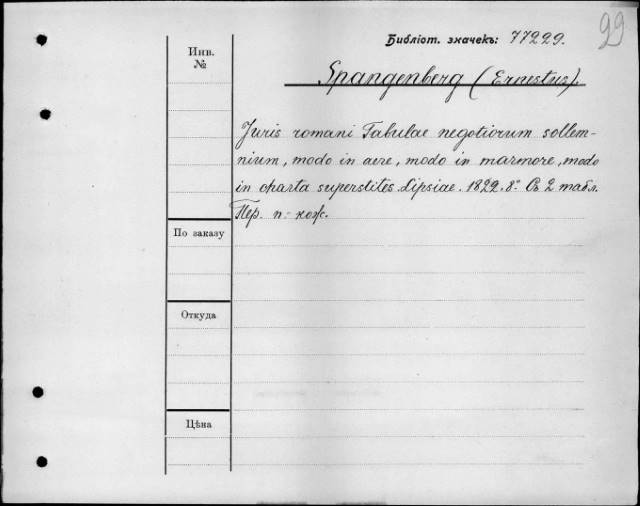 99
Библіот. значекъ: 77229.
Инв.
№
Spangenberg (Ernestus).
Juris romani Tabulae negotiorum sollem-
nium, modo in aere, modo in marmore, modo
in charta superstites. Lipsiae. 1822. 8° Съ 2 табл.
Пер. п.-кож.
По заказу
Откуда
Цѣна